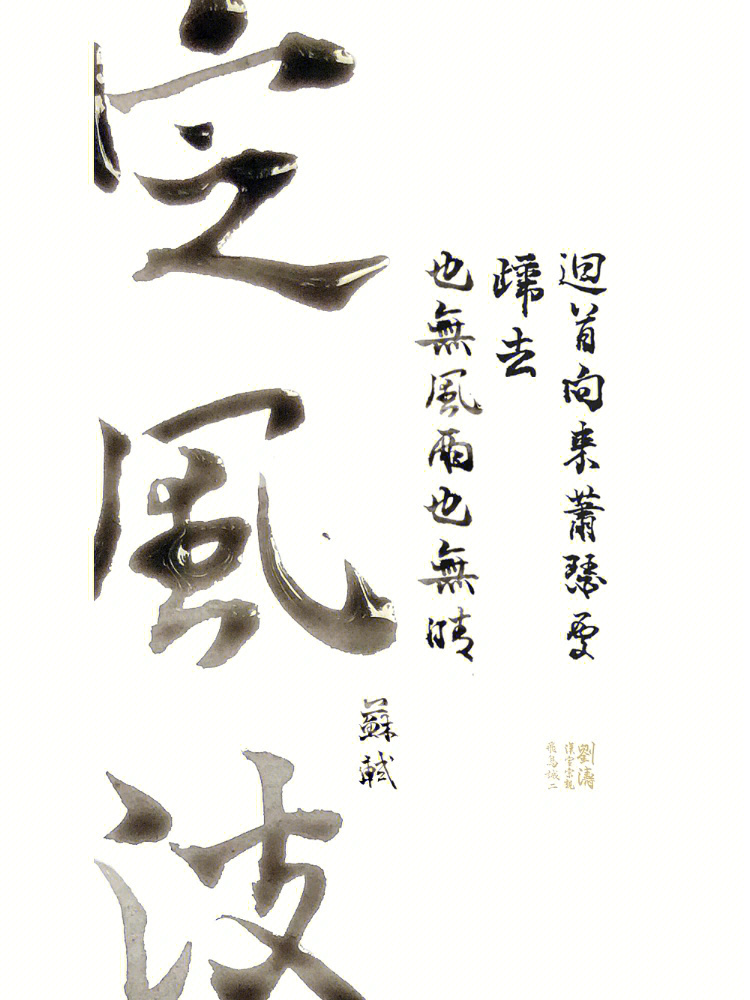 迴首向来蕭瑟處
歸去
也無風雨也無晴
蘇軾
定風波
劉濤